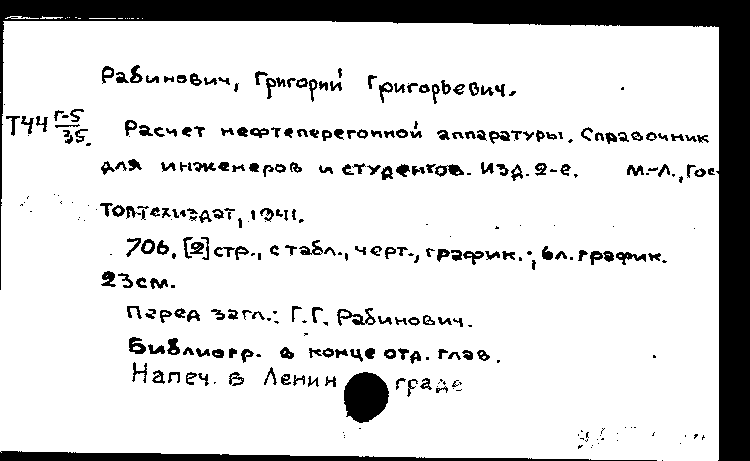 Рабинович, Григорий Григорьевич.
Т44 Г-5
35.
Расчет нефтеперегонной аппаратуры. Справочник
для инженеров и студентов. Изд. 2-е. М.-Л., Гос-
топтехиздат, 1941.
706, [2] стр., с табл., черт., график.; 6л. график.
23см.
Перед загл.: Г.Г. Рабинович.
Библиогр. в конце отд. глав.
Напеч. в Ленинграде